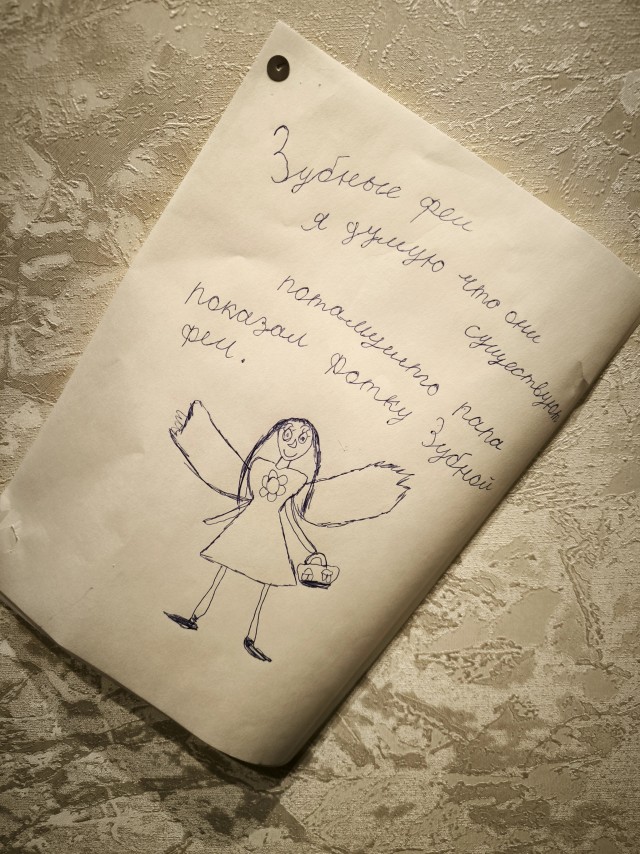 Зубные феи
я думую что они
существуют
потамушто папа
показал фотку Зубной
феи.